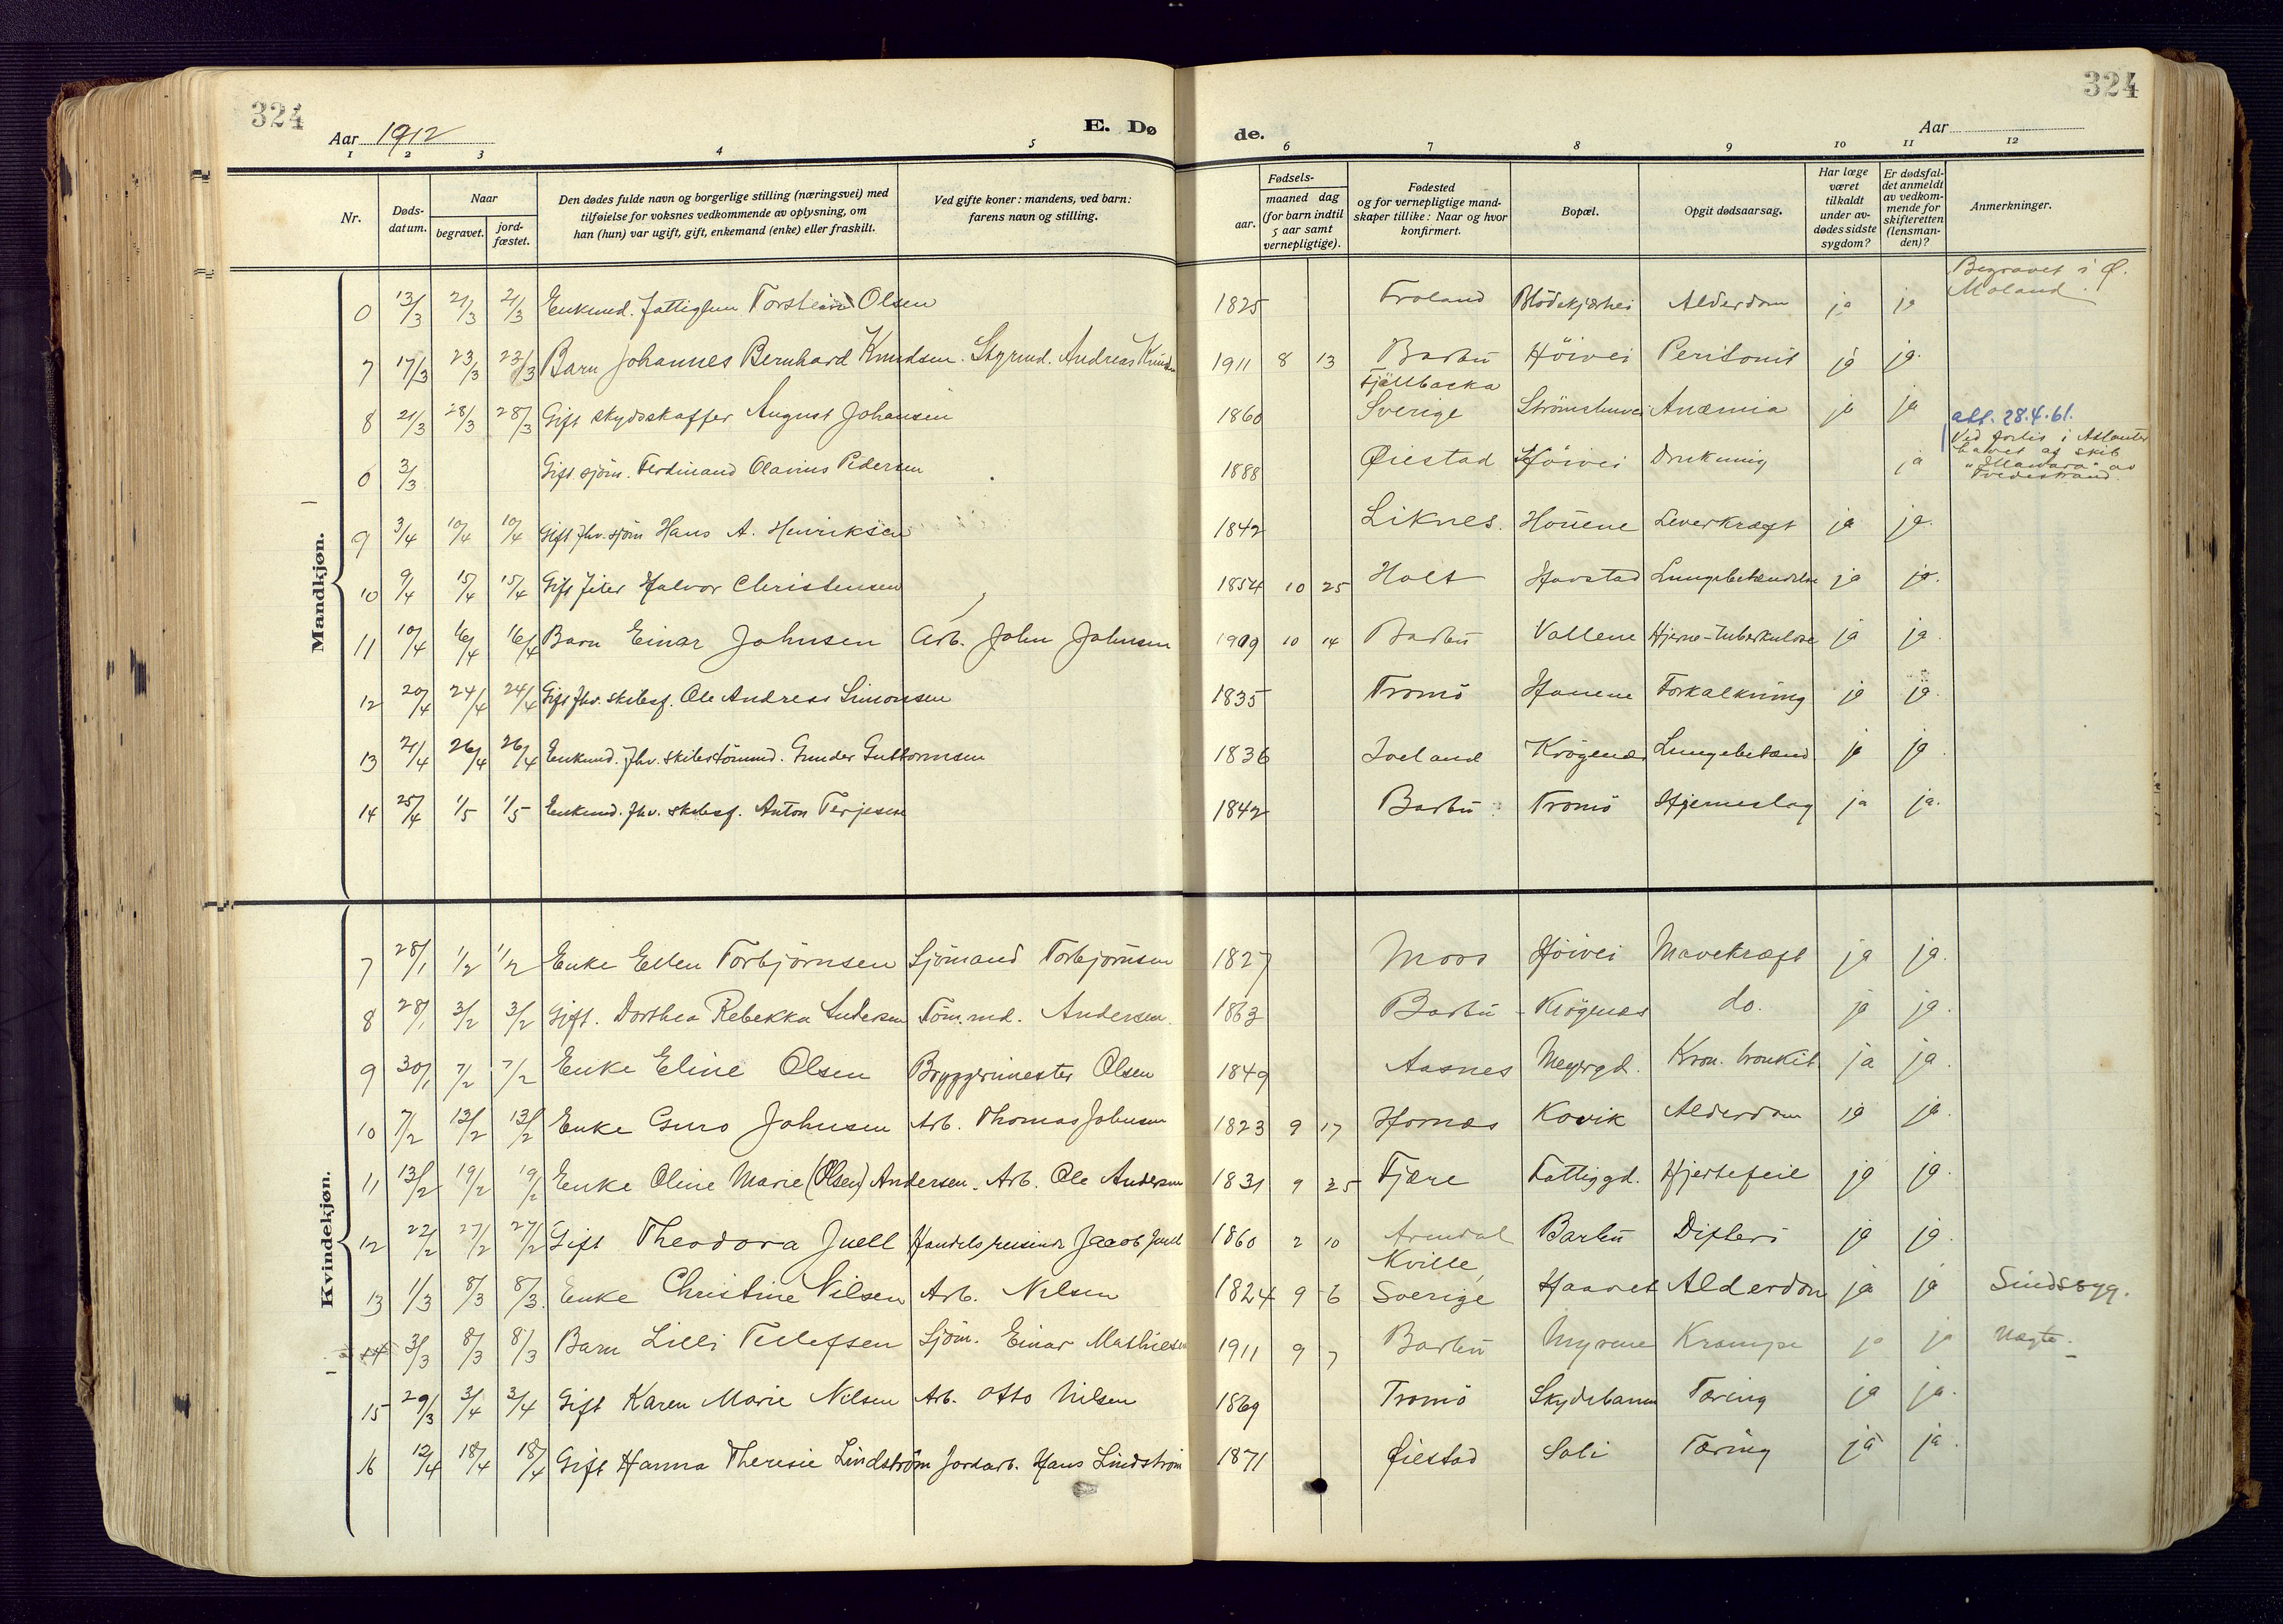 324
324
Aar 1912
E. Dø
de.
Aar
1 2 3 4 5 6 7 8 9 10 11 12
Nr.
Døds-
datum.
Naar
begravet.
jord-
fæstet.
Den dødes fulde navn og borgerlige stilling (næringsvei) med
tilføielse for voksnes vedkommende av oplysning, om
han (hun) var ugift, gift, enkemand (enke) eller fraskilt.
Ved gifte koner: mandens, ved barn:
farens navn og stilling.
Fødsels-
aar.
maaned dag
(for barn indtil
5 aar samt
vernepligtige).
Fødested
og for vernepligtige mand-
skaper tillike: Naar og hvor
konfirmert.
Bopæl.
Opgit dødsaarsag.
Har læge
været
tilkaldt
under av-
dødes sidste
sygdom?
Er dødsfal-
det anmeldt
av vedkom-
mende for
skifteretten
(lensman-
den)?
Anmerkninger.
Mandkjøn.
0 13/3 21/3 21/3 Enkemd. fattiglem Torstein Olsen 1825 Froland Blödekjærhei Alderdom ja ja Begravet i Ø. Moland.
7 17/3 23/3 23/3 Barn Johannes Bernhard Knudsen. Styrmd. Andreas Knudsen 1911 8 13 Barbu Höivei Peritonit ja ja.
8 21/3 28/3 28/3 Gift skydsskaffer August Johansen 1860 Fjällbacka Sverige Strömsbuvei Anæmia ja ja
0 3/3 Gift sjöm. Ferdinand Olavius Pedersen 1888 Øiestad Höivei Drukning ja att. 28.4.61.
Ved forlis i Atlanter
havet af skib
"Illawara" av
Tvedestrand.
9 3/4 10/4 10/4 Gift fhv. sjöm Hans A. Henriksen 1842 Liknes. Houene Leverkræft ja ja.
10 9/4 15/4 15/4 Gift Halvor Christensen 1854 10 25 Holt Havstad Lungebetændelse ja ja.
11 10/4 16/4 16/4 Barn Einar Johnsen Arb. John Johnsen 1909 10 14 Barbu Vollene Hjerne-tuberkulose ja ja.
12 20/4 24/4 24/4 Gift fhv. skibsf. Ole Andreas Simonsen 1835 Tromö Houene Forkalkning ja ja.
13 21/4 26/4 26/4 Enkemd. fhv. skibstömmd. Gunder Guttormsen 1836 Iveland Krögenæs Lungebetænd ja ja.
14 25/4 1/5 1/5 Enkemd. fhv. skibsf. Anton Terjesen 1842 Barbu Tromö Hjerneslag ja ja.
Kvindekjøn.
7 28/1 1/2 1/2 Enke Ellen Torbjörnsen Sjömand Torbjörnsen 1827 Moss Höivei Mavekræft ja ja.
8 28/1 3/2 3/2 Gift. Dorthea Rebekka Andersen Töm.md. Andersen. 1863 Barbu Krögenæs do. ja ja.
9 30/1 7/2 7/2 Enke Eline Olsen Bryggerimester Olsen 1849 Aasnes Meyergd. Kron. bronkit ja ja.
10 7/2 13/2 13/2 Enke Guro Johnsen Arb. Thomas Johnsen 1823 9 17 Hornæs Kovik Alderdom ja ja.
11 13/2 19/2 19/2 Enke Oline Marie (Olsen) Andersen. Arb. Ole Andersen 1831 9 25 Fjære Fattiggd. Hjertefeil ja ja.
12 22/2 27/2 27/2 Gift Theodora Juell Handelsreisende Jacob Juell 1860 2 10 Arendal Barbu Difteri ja ja.
13 1/3 8/3 8/3. Enke Christine Nilsen Arb. Nilsen 1824 9 6 Kville, Sverige Haavet Alderdom ja ja Sindssyg.
14 3/3 8/3 8/3 Barn Lilli Tellefsen Sjöm. Einar Mathiesen 1911 9 7 Barbu Myrene Krampe ja ja Uægte.
15 29/3 3/4 3/4 Gift Karen Marie Nilsen Arb. Otto Nilsen 1869 Tromö Skydebanen Tæring ja ja.
16 12/4 18/4 18/4 Gift Hanna Theresie Lindström Jordarb. Hans Lindström 1871 Øiestad Soli Tæring ja ja.